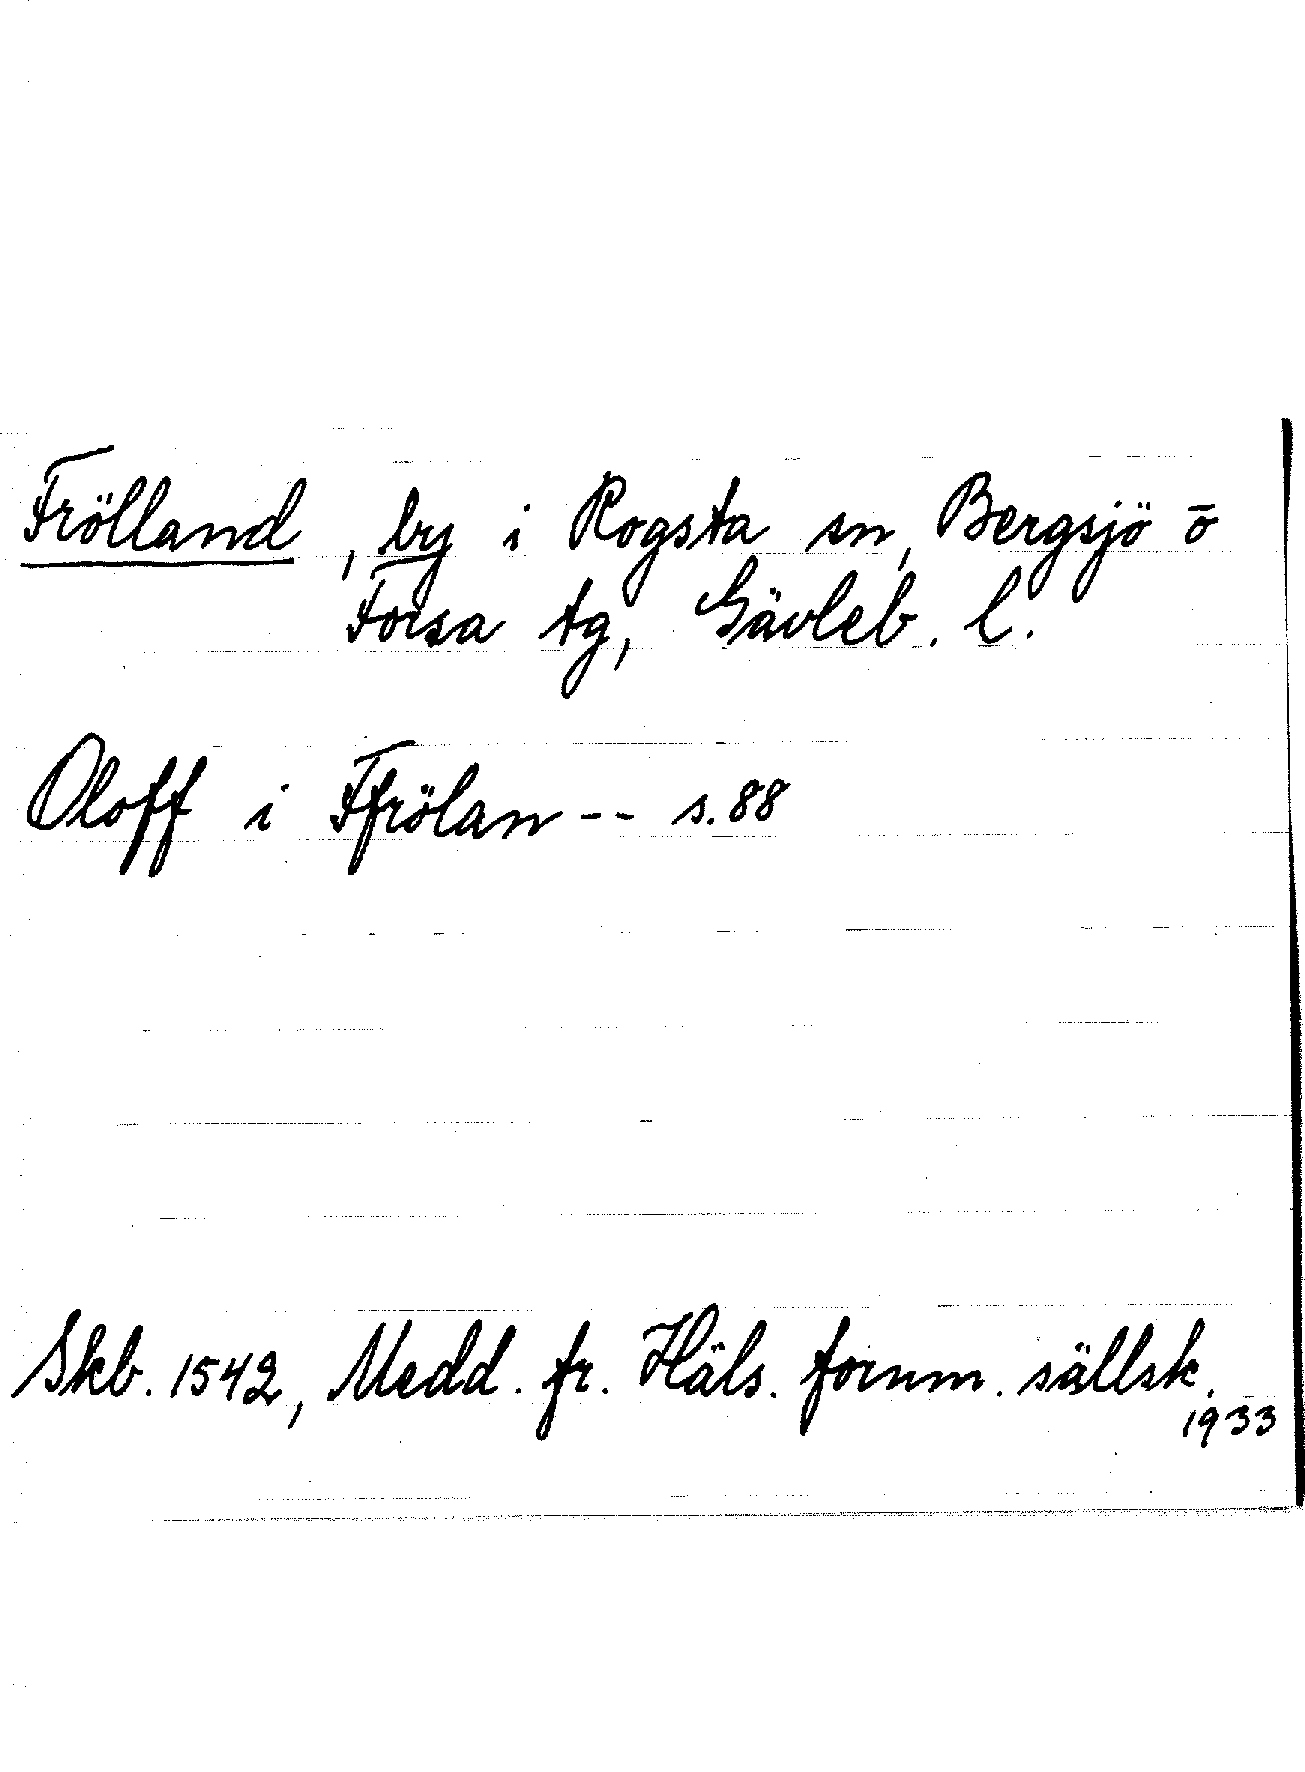 Frölland, by i Rogsta sn, Bergsjö o
Forsa tg, Gävleb. l.
Oloff i Ffrölan -- s. 88
Skb. 1542, Medd. fr. Häls. fornm. sällsk.
1933